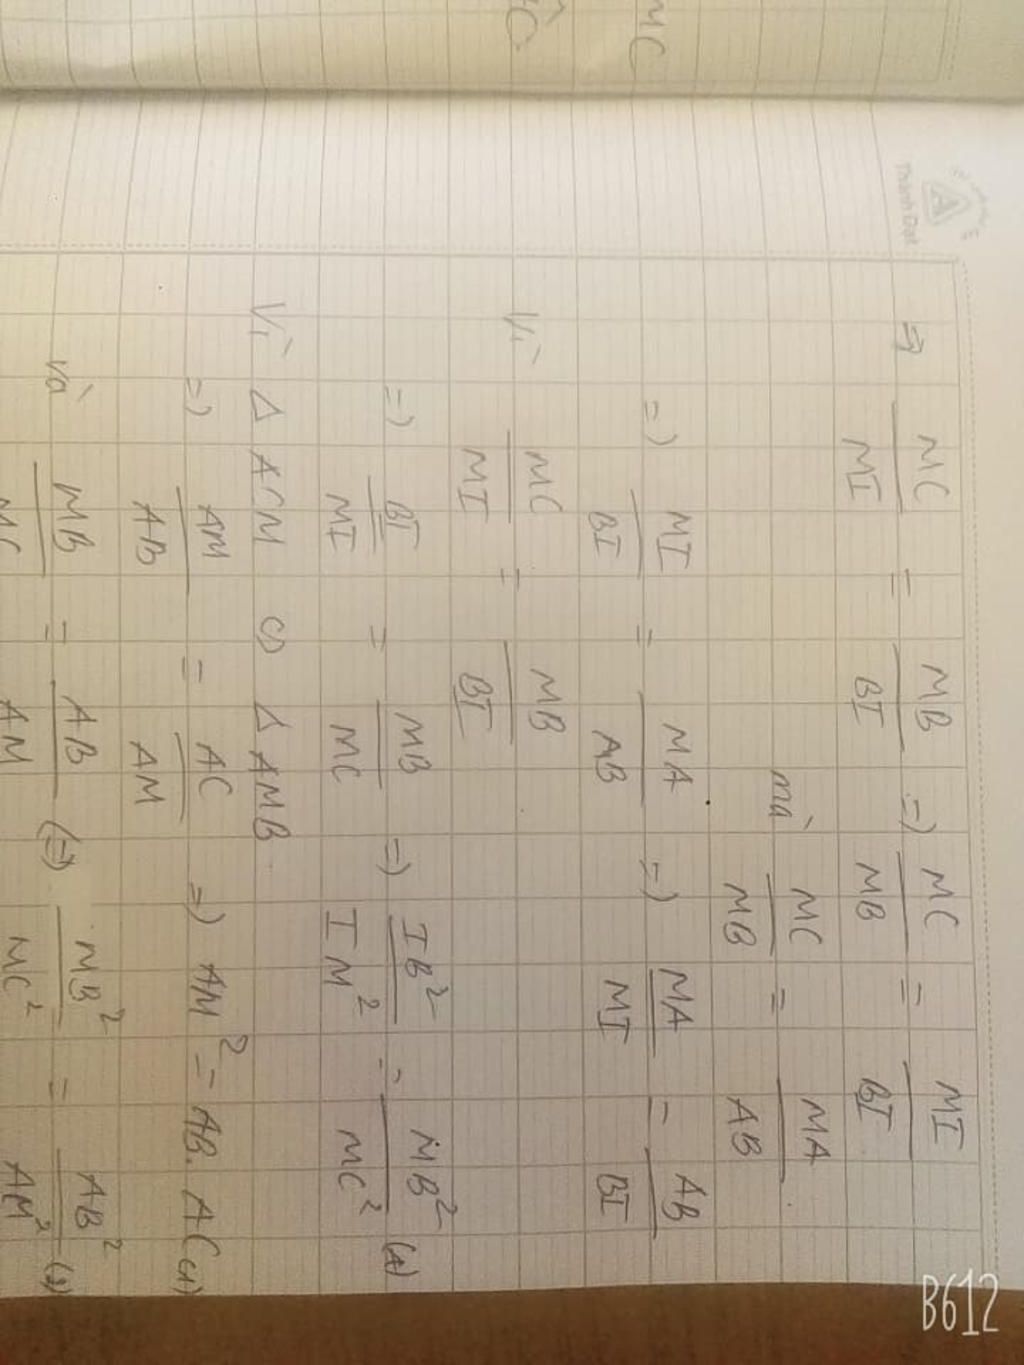 MC
Thành Đạt
=> MC/MI = MB/BI => MC/MB = MI/BI
mà MC/MB = MA/AB
=> MI/BI = MA/AB => MA/MI = AB/BI
Vì MC/MI = MB/BI
=> BI/MI = MB/MC => IB²/IM² = MB²/MC² (4)
Vì Δ ACM ∽ Δ AMB
=> AM/AB = AC/AM => AM² = AB.AC (1)
và MB/MC = AB/AM (=) MB²/MC² = AB²/AM²
B612